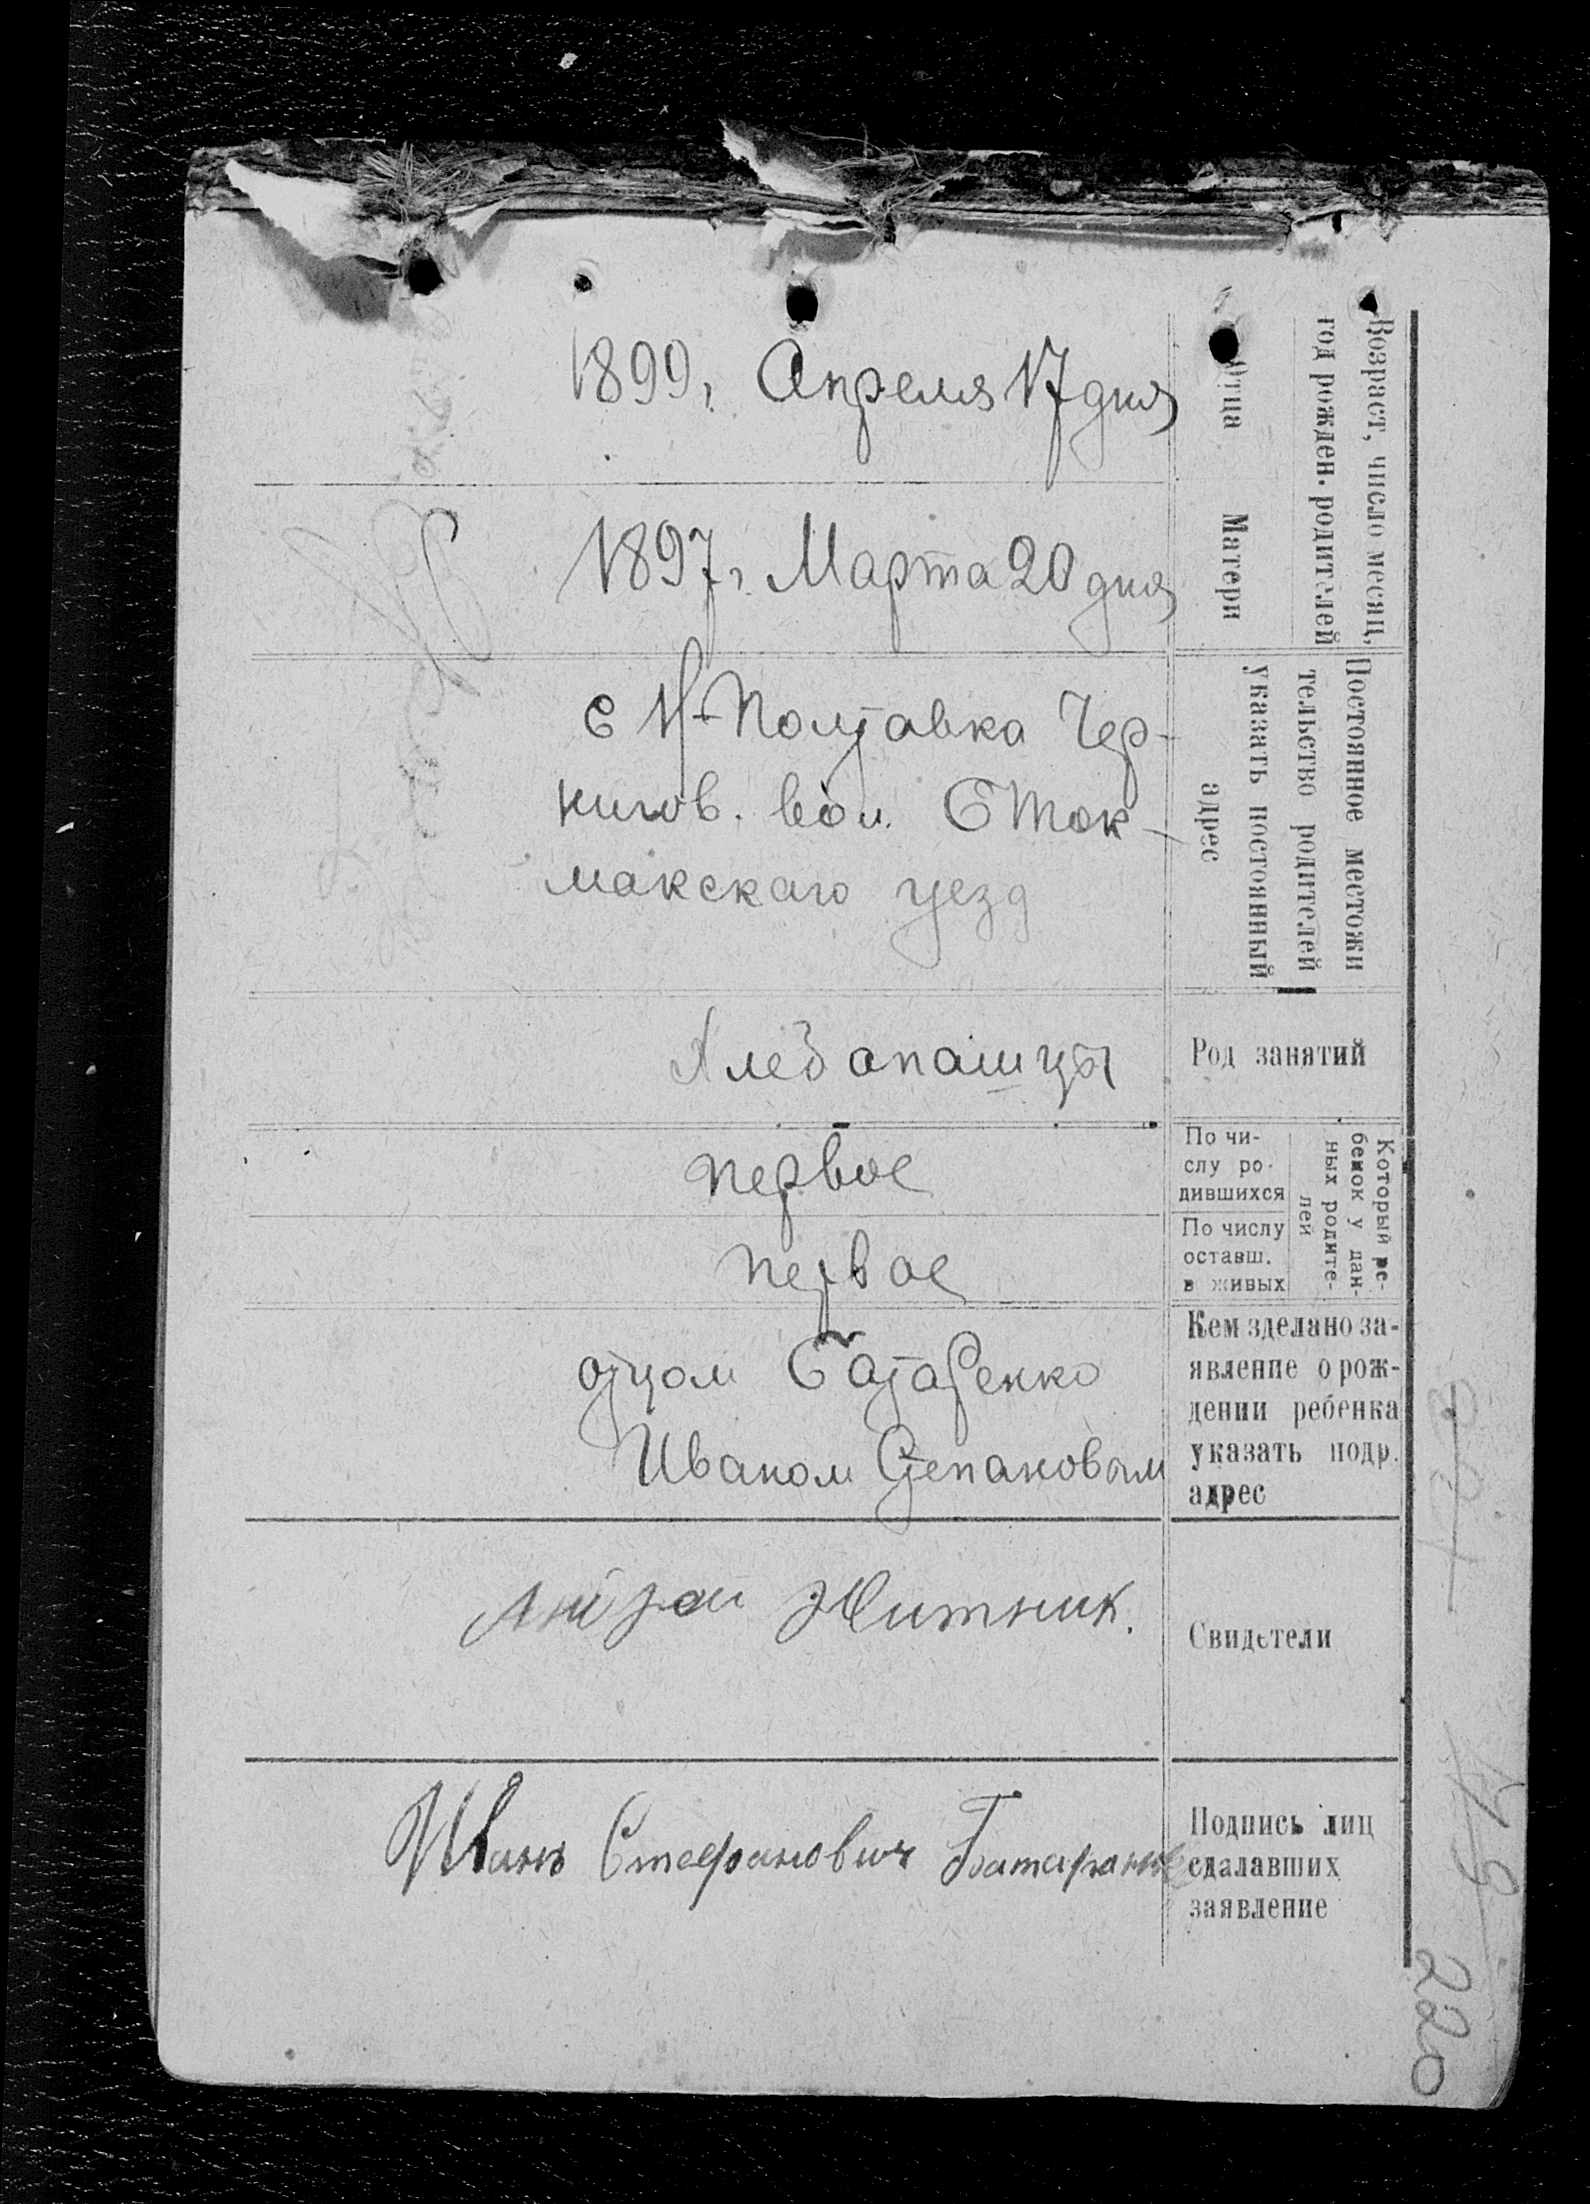 Возраст, число месяц,
год рожден. родителей
Отца
1899 г. Апреля 17 дня
Матери
1897 г. Марта 20 дня
Постоянное местожи
тельство родителей
указать постоянный
адрес
с Н-Полтавка Чер-
нигов. вол. Б Ток-
макскаго уезд
Род занятий
Хлебопашцы
Который ре-
бенок у дан-
ных родите-
лей
По чи-
слу ро-
дившихся
первое
По числу
оставш.
в живых
первое
Кем зделано за-
явление о рож-
дении ребенка
указать подр.
адрес
отцом Батаренко
Иваном Степановым
Свидетели
Житник.
Подпись лиц
сдалавших
заявление
Иванъ Стефанович
220